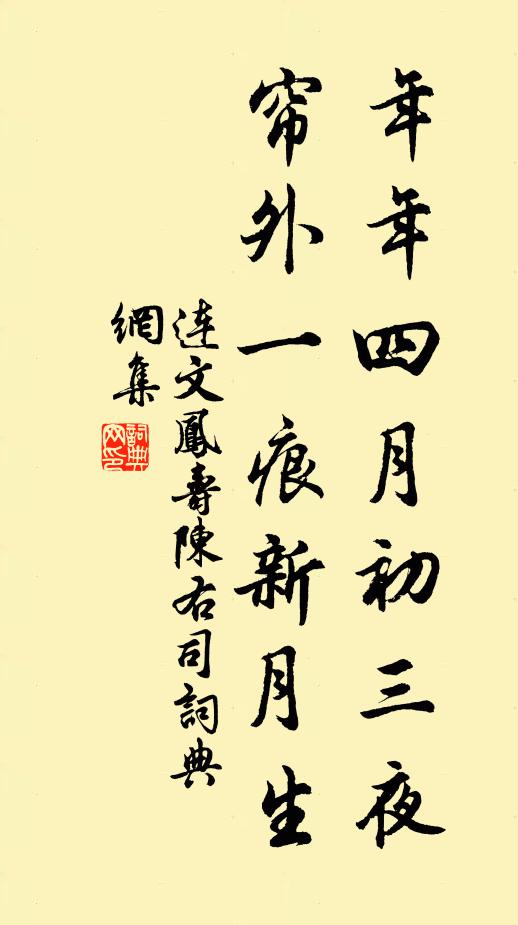 年年四月初三夜
帘外一痕新月生
連文鳳壽陳右司詞典
網集
詞典網印